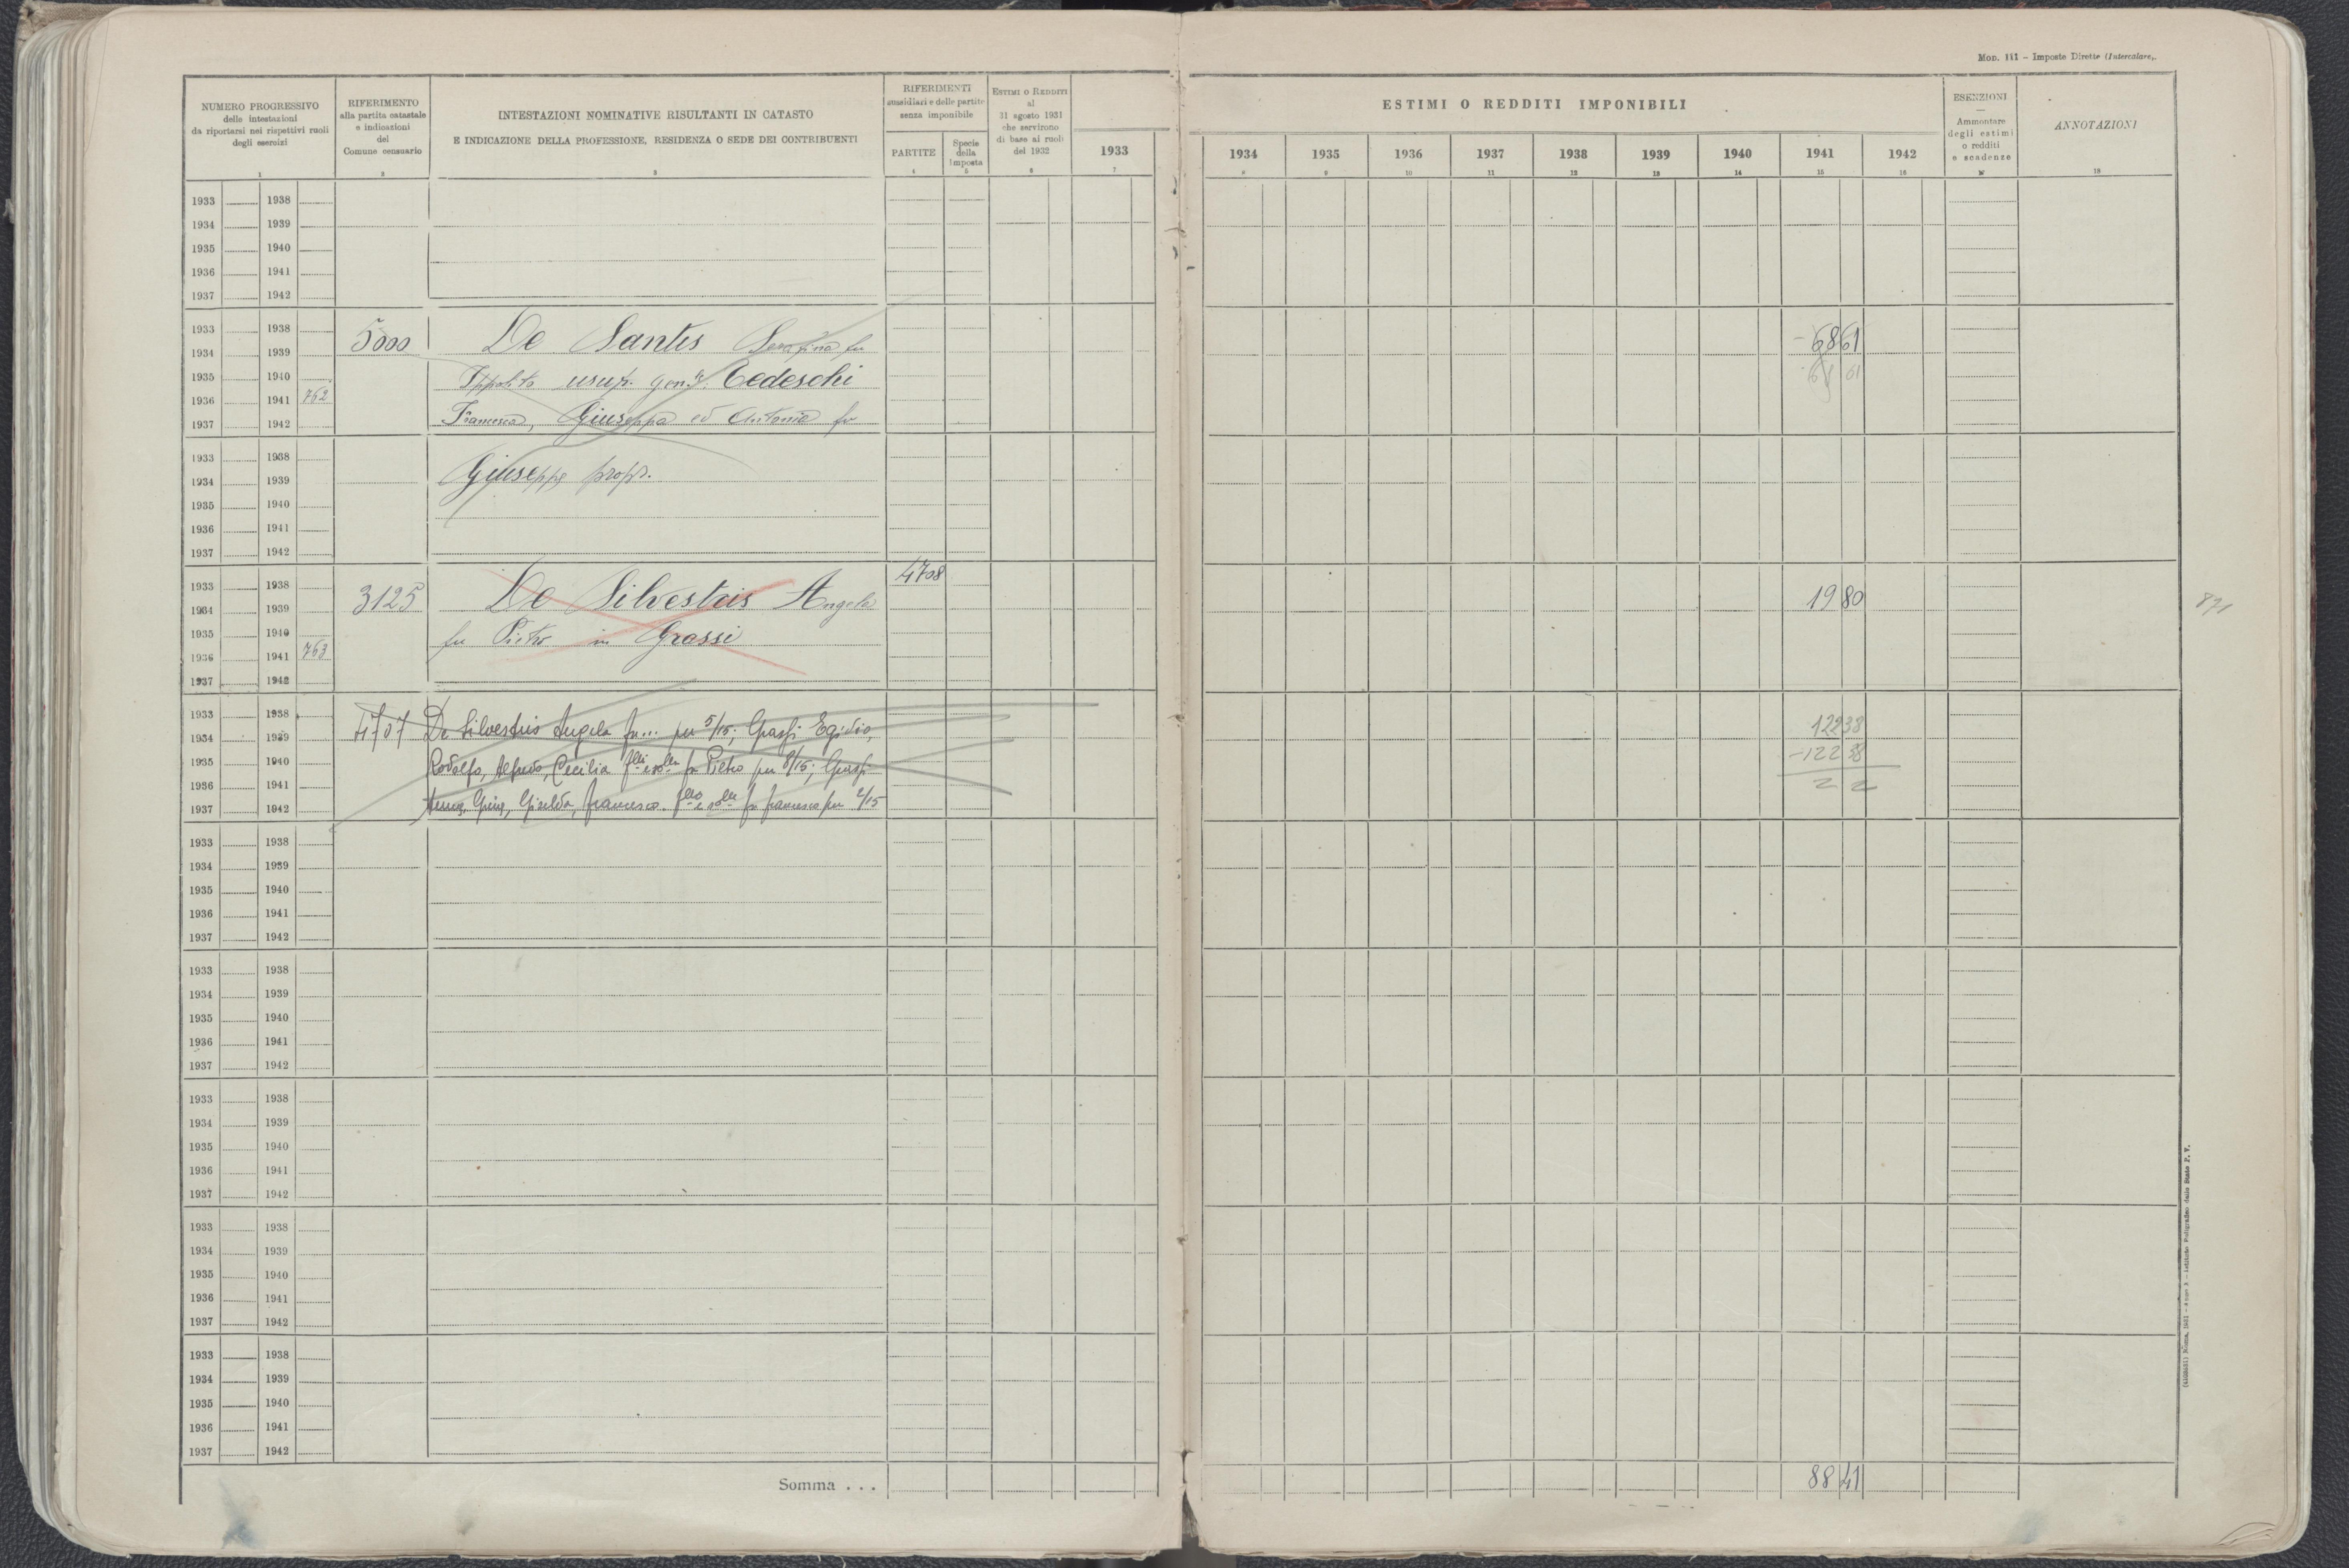 Mod. 111 – Imposte Dirette (Intercalare).
NUMERO PROGRESSIVO
delle intestazioni
da riportarsi nei rispettivi ruoli
degli esercizi
1
RIFERIMENTO
alla partita catastale
e indicazioni
del
Comune censuario
2
INTESTAZIONI NOMINATIVE RISULTANTI IN CATASTO
E INDICAZIONE DELLA PROFESSIONE, RESIDENZA O SEDE DEI CONTRIBUENTI
3
RIFERIMENTI
sussidiari e delle partite
senza imponibile
PARTITE
4
Specie
della
Imposta
5
ESTIMI O REDDITI
al
31 agosto 1931
che servirono
di base ai ruoli
del 1932
6
1933
7
ESTIMI O REDDITI IMPONIBILI
1934 1935 1936 1937 1938 1939 1940 1941 1942
8 9 10 11 12 13 14 15 16
ESENZIONI
—
Ammontare
degli estimi
o redditi
e scadenze
17
ANNOTAZIONI
18
1933 1938
1934 1939
1935 1940
1936 1941
1937 1942
1933 1938
5000 De Santis Serafina fu 6861
1934 1939
1935 1940 Ippolito usuf. gen. Tedeschi 6861
1936 1941 762
1937 1942 Francesca, Giuseppa ed Antonio fu
1933 1938
1934 1939 Giuseppe propr.
1935 1940
1936 1941
1937 1942
1933 1938 4708
3125 De Silvestris Angela 1980
1934 1939
1935 1940 fu Pietro in Grassi
1936 1941 763
1937 1942
1933 1938
4707 De Silvestris Angela fu... per 5/15; Grassi Egidio, 12238
1934 1939
1935 1940 Rodolfo, Alfredo, Cecilia fu Pietro per 8/15; Grassi -12238
1936 1941
1937 1942 Giselda, Francesco fu Francesco per 2/15
1933 1938
1934 1939
1935 1940
1936 1941
1937 1942
1933 1938
1934 1939
1935 1940
1936 1941
1937 1942
1933 1938
1934 1939
1935 1940
1936 1941
1937 1942
1933 1938
1934 1939
1935 1940
1936 1941
1937 1942
1933 1938
1934 1939
1935 1940
1936 1941
1937 1942
Somma . . . 8841